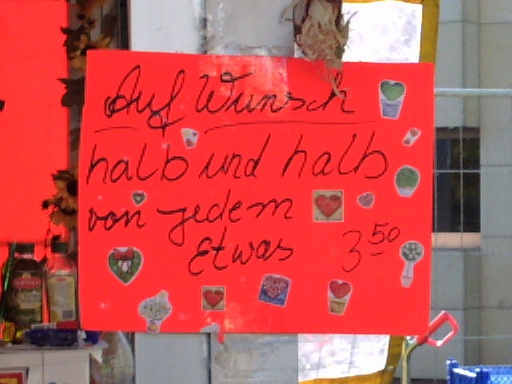 Auf Wunsch
halb und halb
von jedem
Etwas 3.50